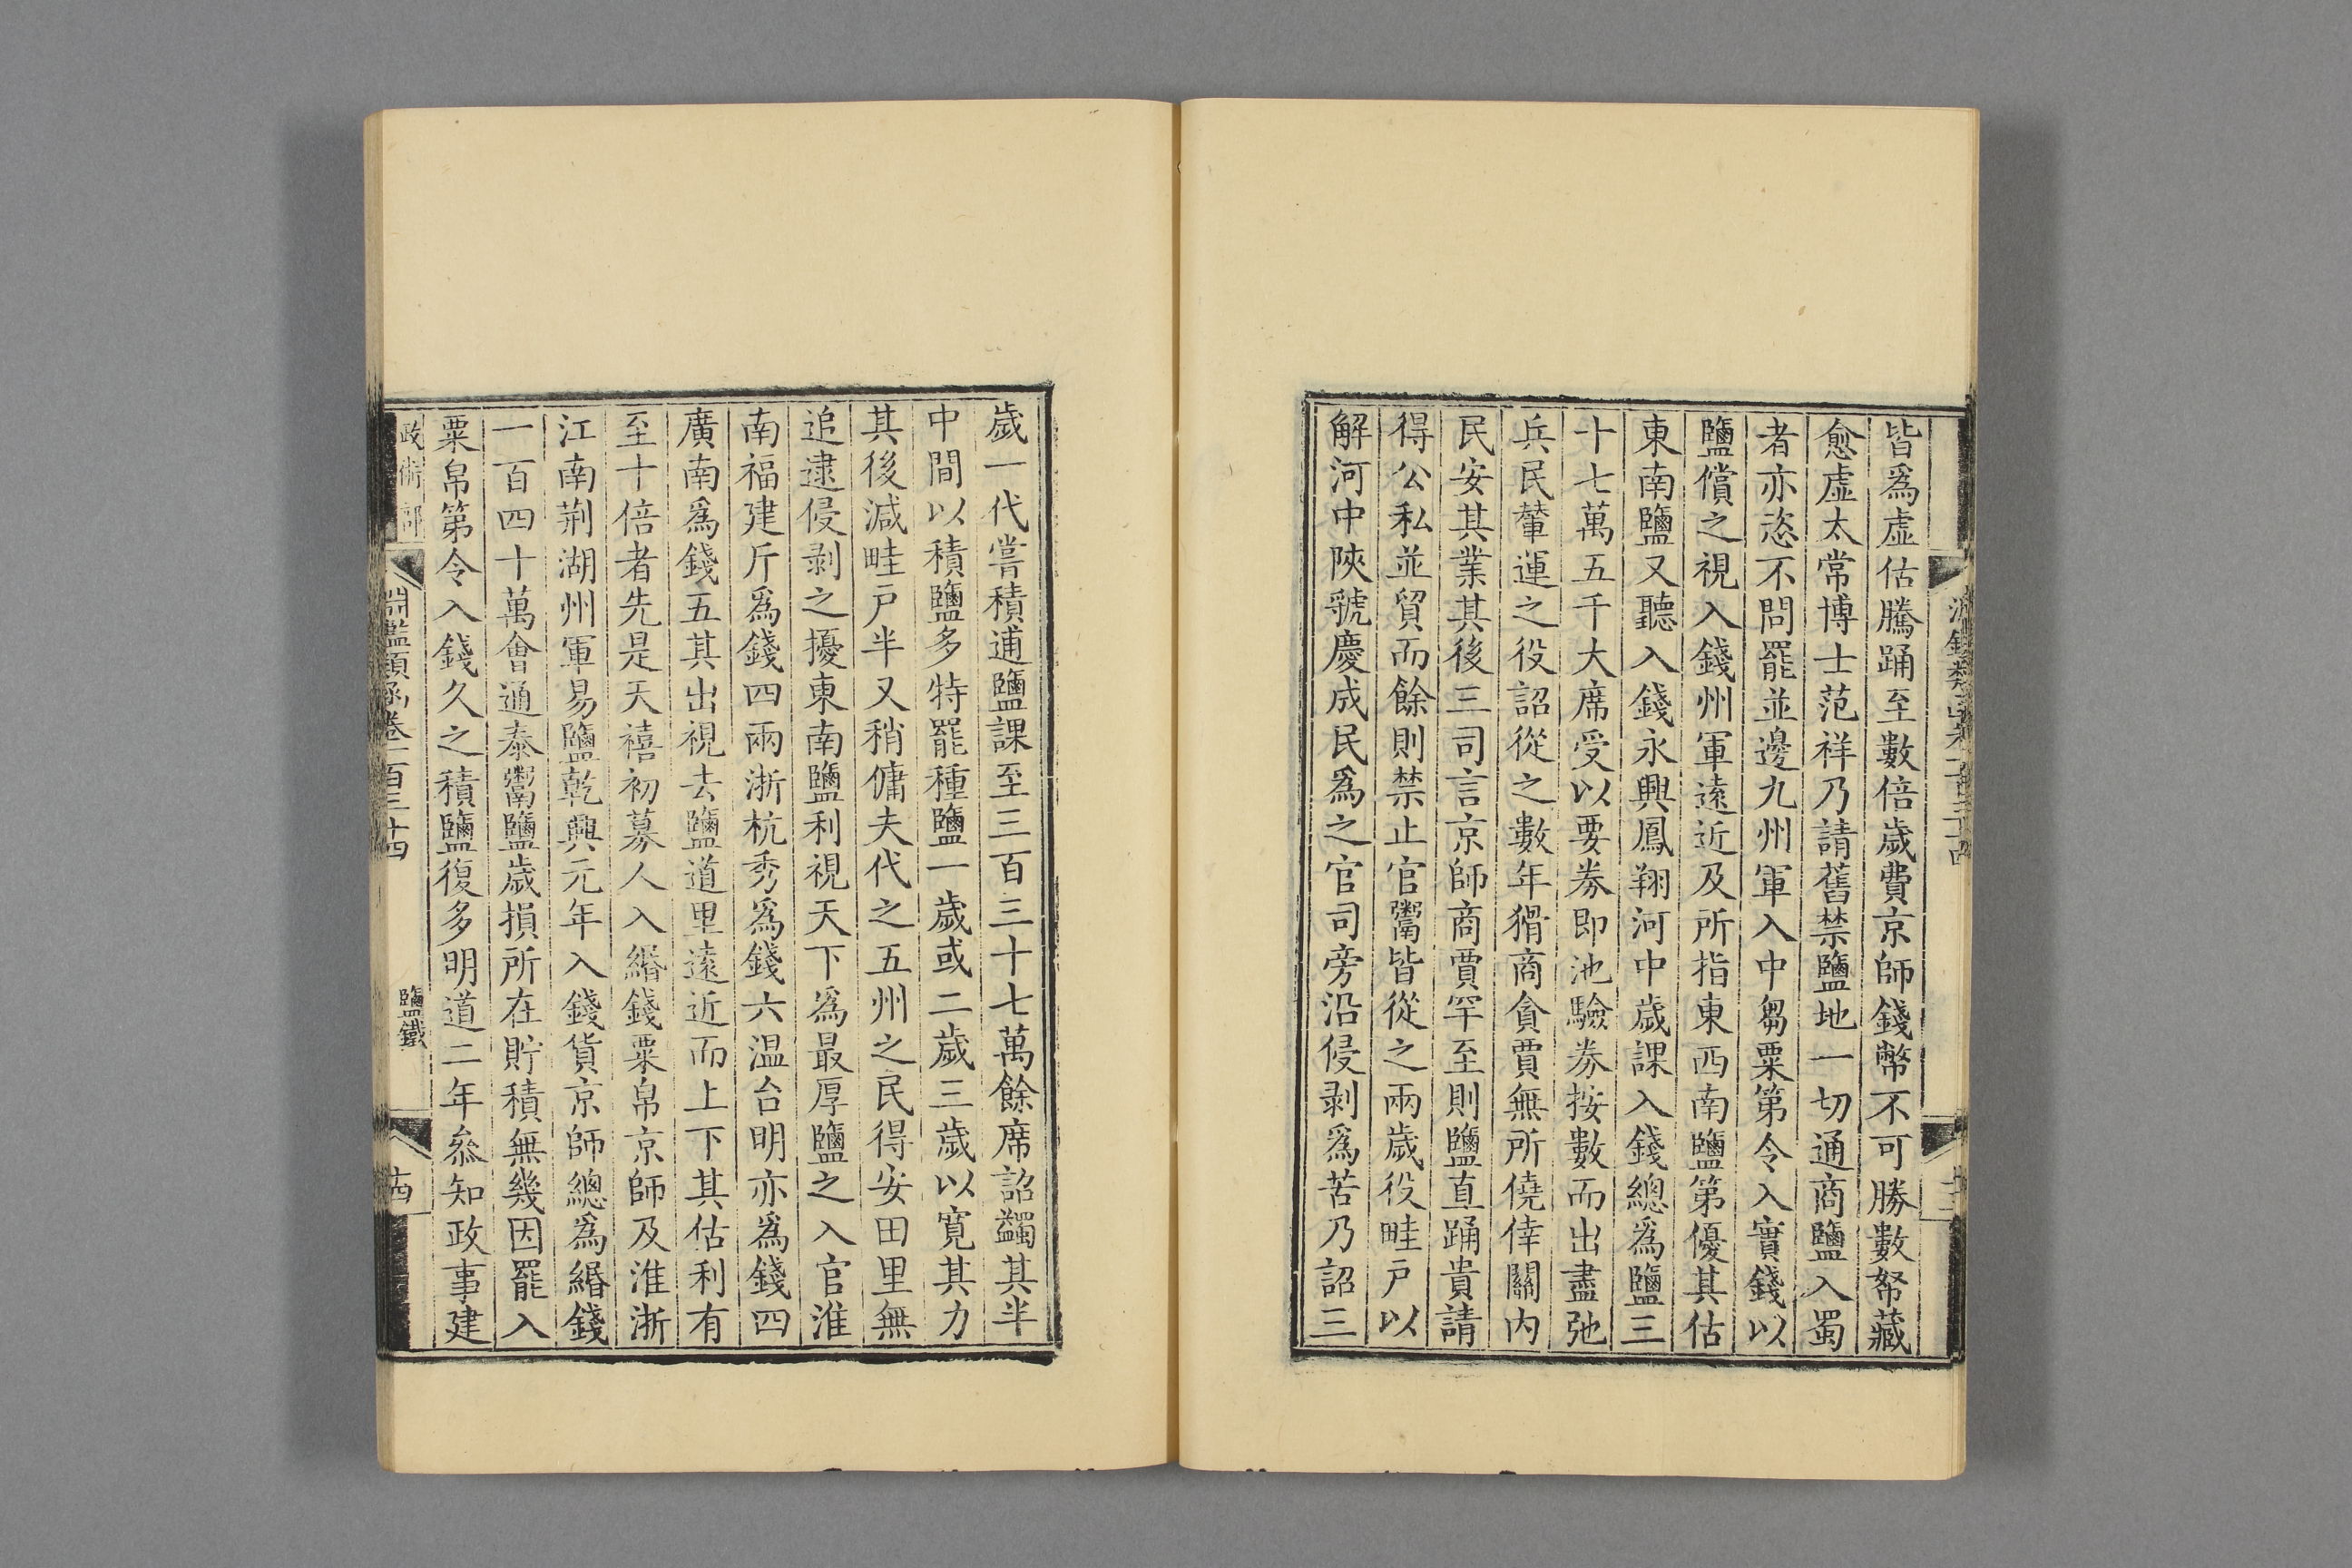 皆爲虛估騰踊至數倍歲費京師錢幣不可勝數帑藏
愈虛太常博士范祥乃請舊禁鹽地一切通商鹽入蜀
者亦恣不問罷並邊九州軍入中芻粟第令入實錢以
鹽償之視入錢州軍遠近及所指東西南鹽第優其估
東南鹽又聽入錢永興鳳翔河中歲課入錢總爲鹽三
十七萬五千大席受以要券即池驗券按數而出盡弛
兵民輦運之役詔從之數年猾商貪賈無所僥倖關內
民安其業其後三司言京師商賈罕至則鹽直踊貴請
得公私並貿而餘則禁止官鬻皆從之兩歲役畦戶以
解河中陝虢慶成民爲之官司旁沿侵剥爲苦乃詔三
歲一代嘗積逋鹽課至三百三十七萬餘席詔蠲其半
中間以積鹽多特罷種鹽一歲或二歲三歲以寬其力
其後減畦戶半又稍傭夫代之五州之民得安田里無
追逮侵剥之擾東南鹽利視天下爲最厚鹽之入官淮
南福建斤爲錢四兩浙杭秀爲錢六温台明亦爲錢四
廣南爲錢五其出視去鹽道里遠近而上下其估利有
至十倍者先是天禧初募人入緡錢粟帛京師及淮浙
江南荆湖州軍易鹽乾興元年入錢貨京師總爲緡錢
一百四十萬會通泰鬻鹽歲損所在貯積無幾因罷入
粟帛第令入錢久之積鹽復多明道二年叅知政事建
政術部 淵鑑類函卷一百三十四 鹽鐵 十四